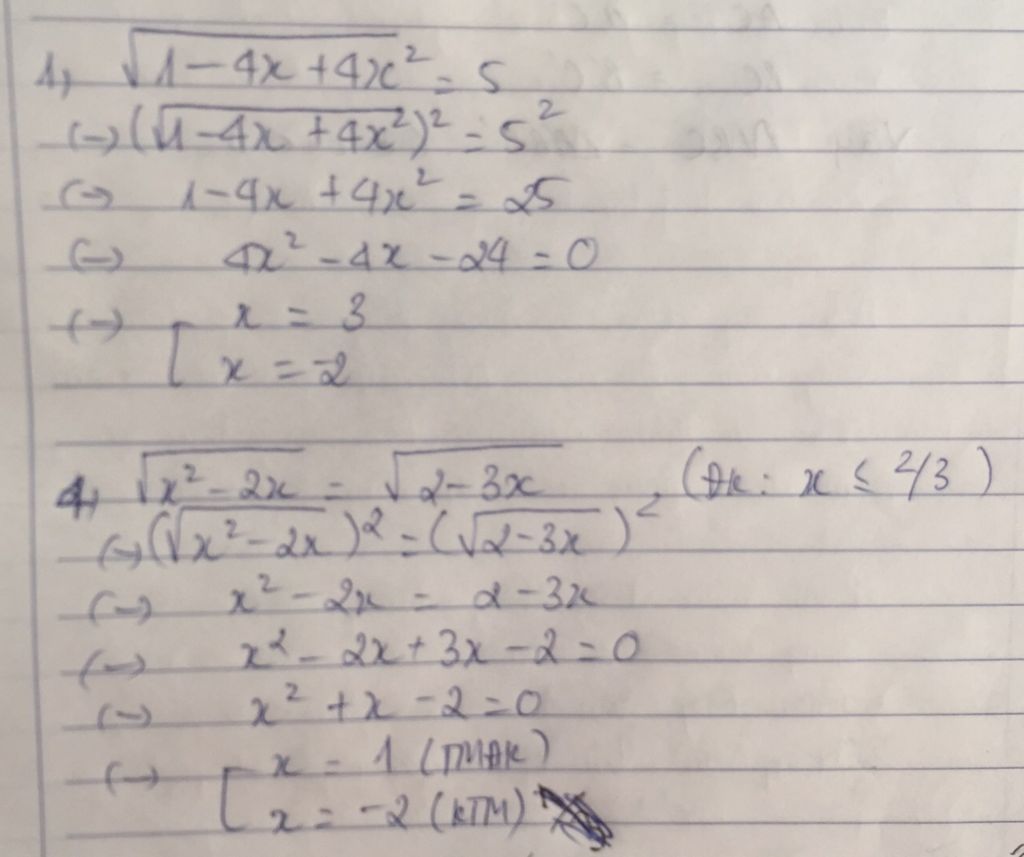 1, √1-4x+4x² = 5
(→) (√1-4x+4x²)² = 5²
(→) 1-4x+4x² = 25
(→) 4x²-4x-24=0
(→) [ x = 3
x = -2
4, √x²-2x = √2-3x , (ĐK: x ≤ 2/3)
(→) (√x²-2x)² = (√2-3x)²
(→) x²-2x = 2-3x
(→) x²-2x+3x-2=0
(→) x²+x-2=0
(→) [ x = 1 (TMĐK)
x = -2 (KTM)